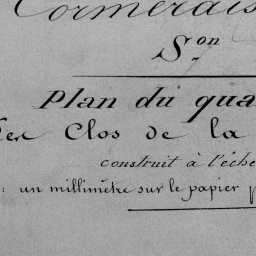 Cormerais
Son
Plan du qua
Clos de la
construit à l'éche
: un millimètre sur le papier p